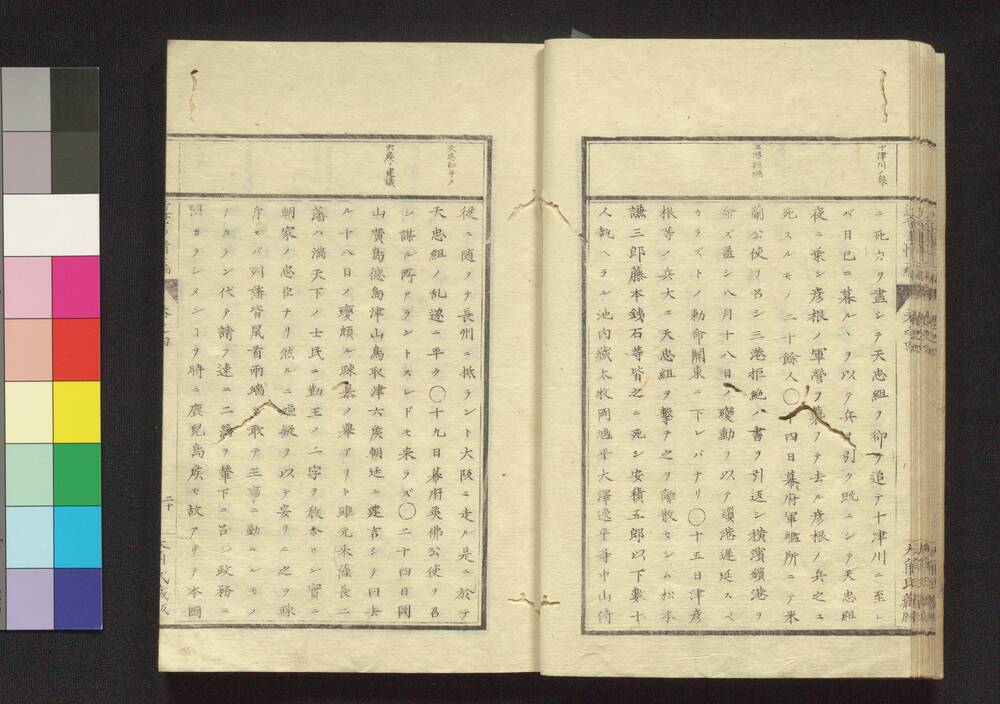 十津川ノ擧
ニ死力ヲ盡シテ天忠組ヲ仰ヲ追テ十津川ニ至レ
バ日已ニ暮ルヽヲ以テ兵ヲ引ク既ニシテ天忠組
夜ニ乗シ彦根ノ軍營ヲ襲フテ去ル彦根ノ兵之ニ
死スルモノ二十餘人〇十四日幕府軍艦所ニテ米
三港拒絶
蘭公使ヲ呂シ三港拒絶ノ書ヲ引返シ横濱鎖港ヲ
命ズ蓋シ八月十八日ノ變動ヲ以テ鎖港遅延スベ
カラズトノ勅命關東ニ下レバナリ〇十五日津彦
根等ノ兵大ニ天忠組ヲ擊テ之ヲ離散セシム松本
謙三郎藤本銕石等皆之ニ死シ安積五郎以下數十
人執ヘラル池内藏太牧岡旭平大澤逸平等中山侍
從ニ随フテ長州ニ抵ラント大阪ニ走ル是ニ於テ
天忠組ノ乱遂ニ平ク〇十九日幕府英佛公使ヲ呂
シ謀ル所アラントスレドモ来ラズ〇二十四日岡
六矦ノ建議
山廣島德島津山鳥取津六矦朝廷ニ建言シテ曰去
ル十八日ノ變頗ル疎暴ノ擧アリト雖元来薩長二
藩ハ滿天下ノ士民ニ勤王ノ二字ヲ教ヘセシ實ニ
朝家ノ忠臣ナリ然ルニ嫌疑ヲ以テ妄リニ之ヲ疎
斥セバ列藩皆鼠首兩端シ敢テ王事ニ勤ムルモノ
ノカラン代テ請フ速ニ二藩ヲ輦下ニ呂シ政務ニ
カラシメンコヲ時ニ鹿兒島矦モ故アリテ本國
二十